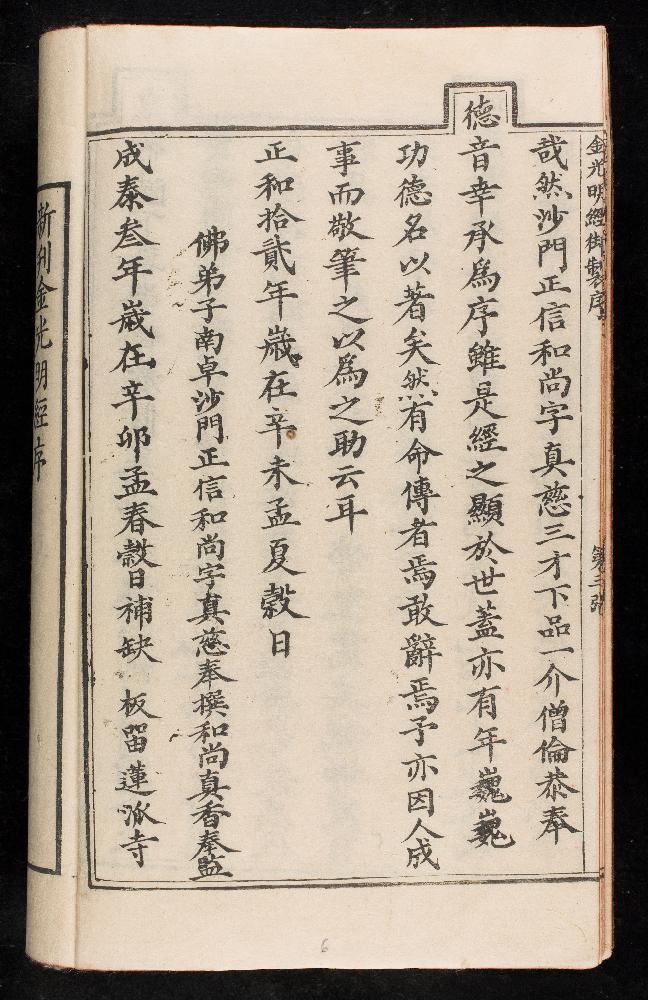 金光明經御製序 第三張
哉然沙門正信和尚字真慈三才下品一介僧倫恭奉
德音幸承爲序雖是經之顯於世蓋亦有年巍巍
功德名以著矣然有命傳者焉敢辭焉予亦因人成
事而敬筆之以爲之助云耳
正和拾貳年歲在辛未孟夏穀日
佛弟子南卓沙門正信和尚字真慈奉撰和尚真香奉監
成泰叁年歲在辛卯孟春穀日補缺 板留蓮派寺
新刊金光明經序